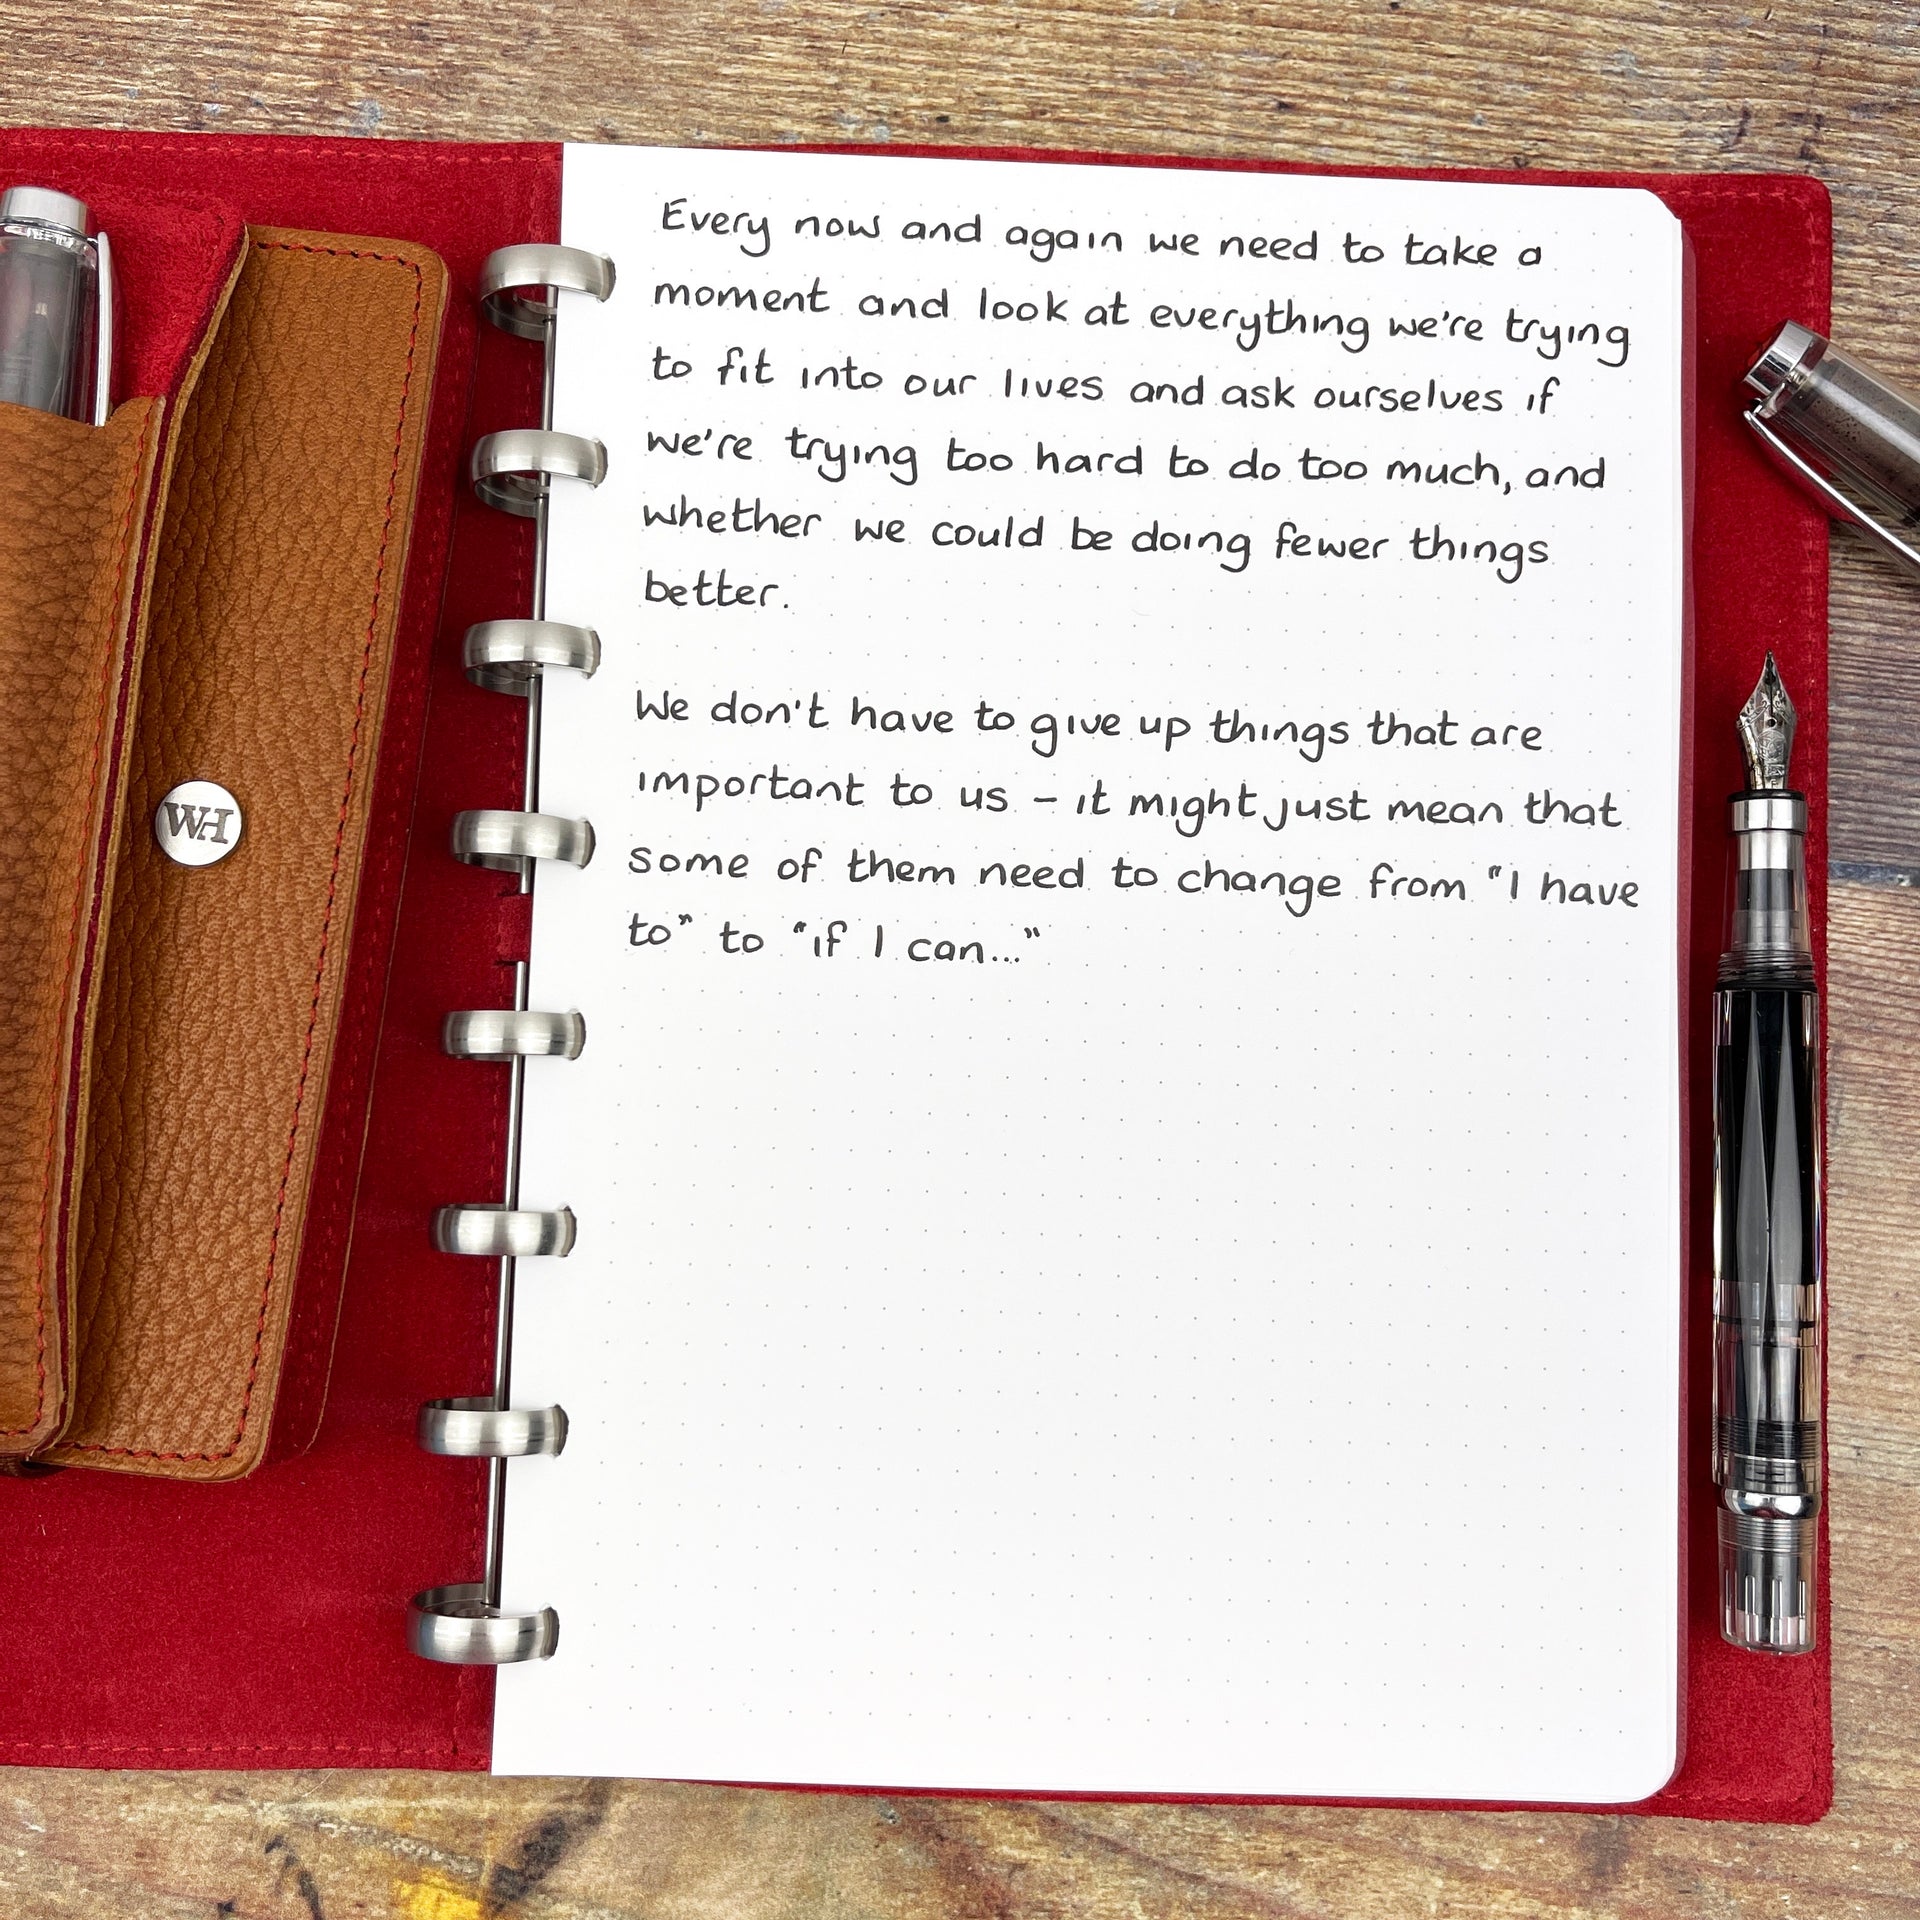 WH
Every now and again we need to take a
moment and look at everything we're trying
to fit into our lives and ask ourselves if
we're trying too hard to do too much, and
whether we could be doing fewer things
better.
We don't have to give up things that are
important to us – it might just mean that
some of them need to change from "I have
to" to "if I can..."